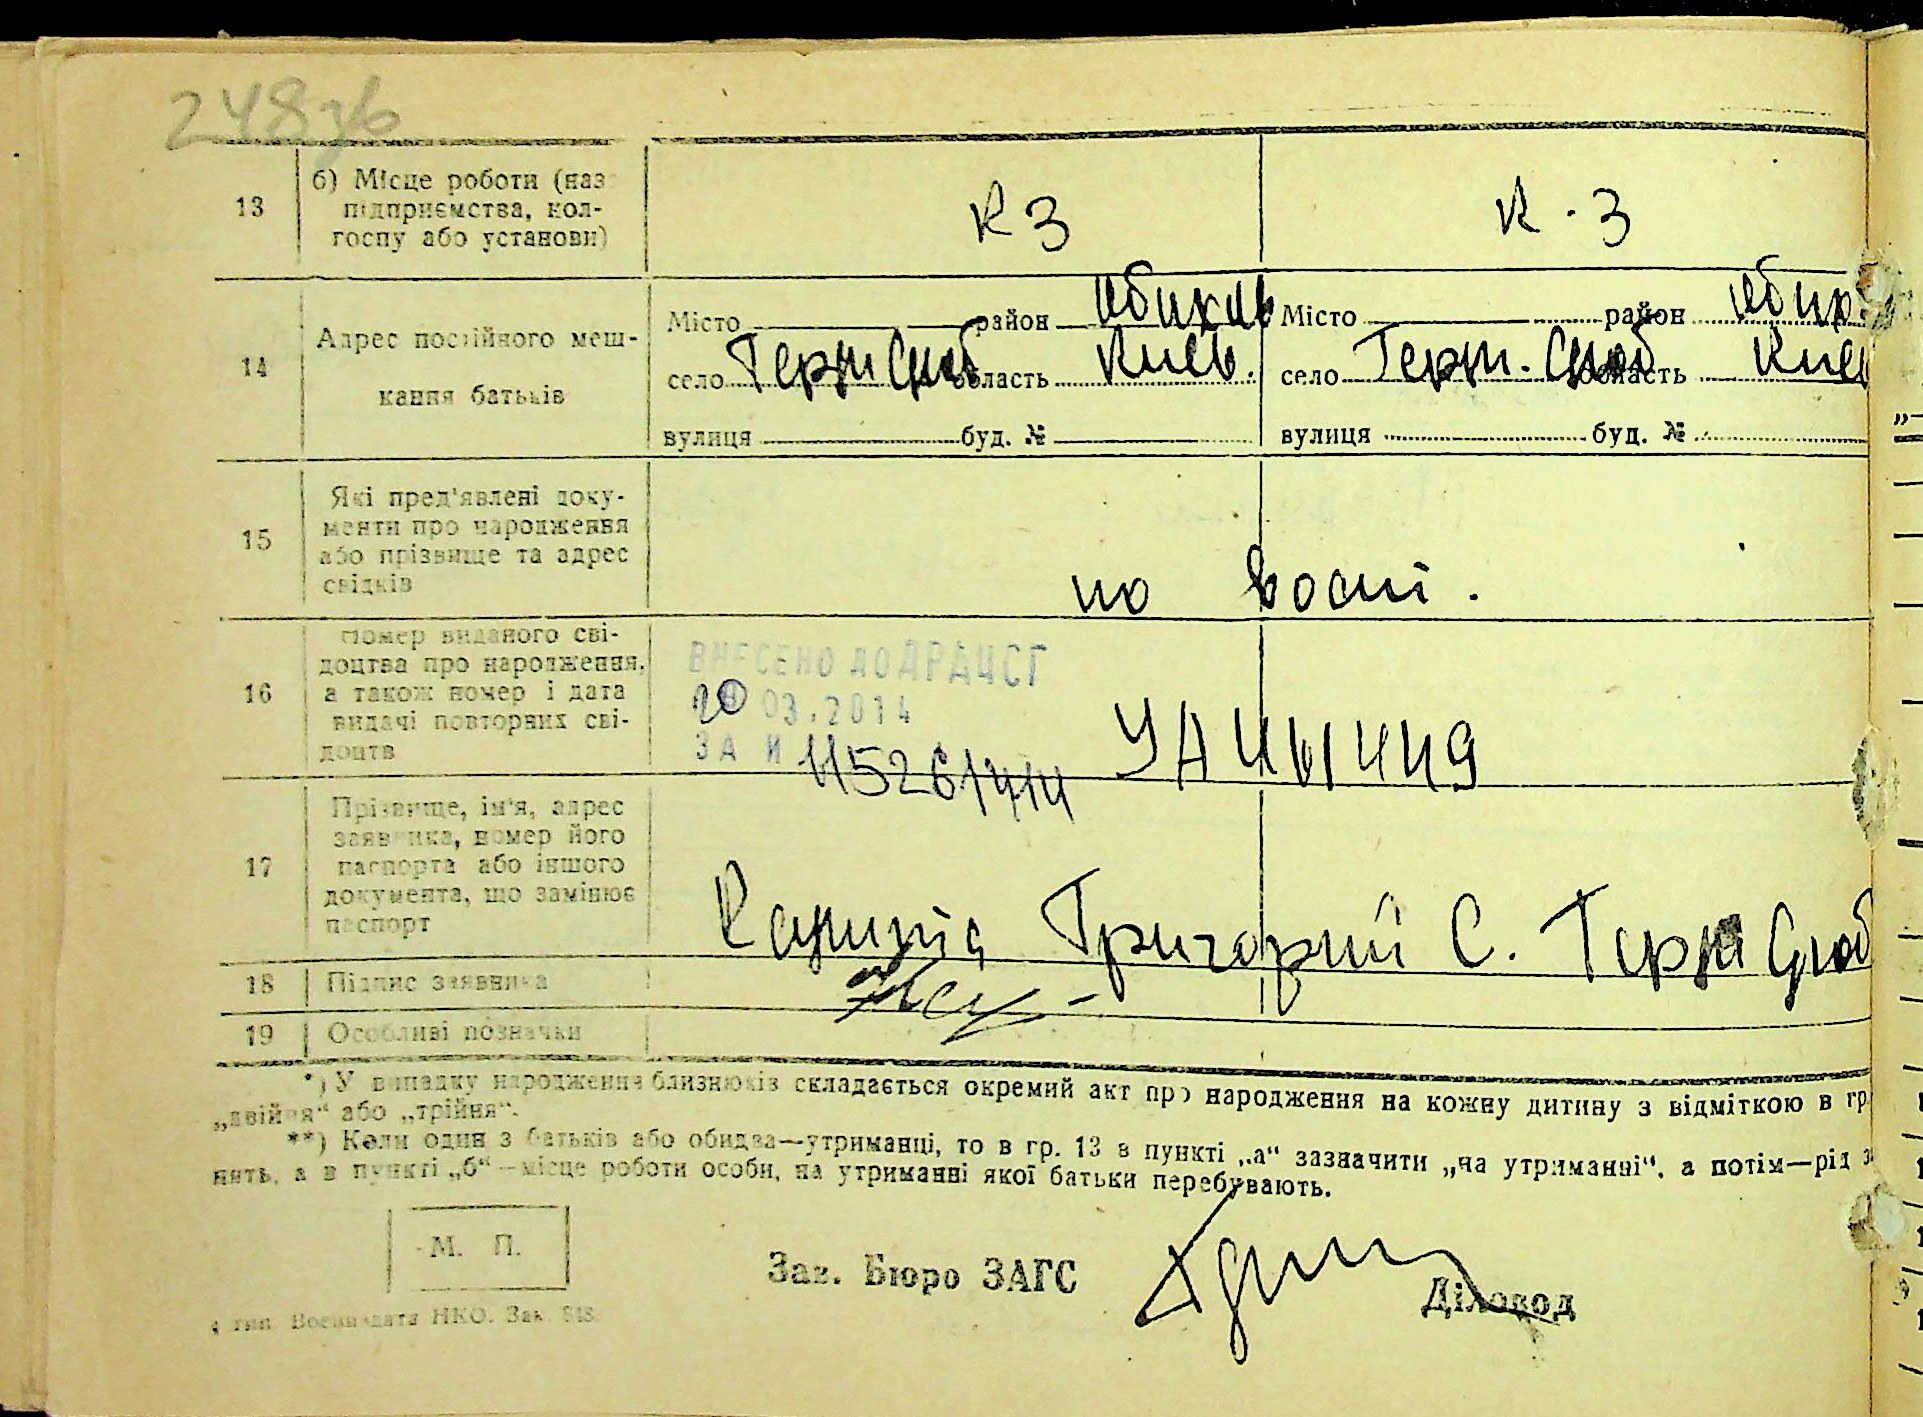 248зв
13
б) Місце роботи (наз
підприємства, кол-
госпу або установи)
КЗ
К·З
14
Адрес постійного меш-
кання батьків
Місто район Обихів
село Герм Слоб область Киев.
вулиця буд. №
Місто район Обих
село Герм. Слоб область Киев
вулиця буд. №
15
Які пред'явлені доку-
менти про народження
або прізвище та адрес
свідків
по
16
Номер виданого сві-
доцтва про народження,
а також номер і дата
видачі повторних сві-
доцтв
ВНЕСЕНО ДО ДРАЦСГ
20 03.2014
ЗА
УА
17
Прізвище, ім'я, адрес
заявника, номер його
паспорта або іншого
документа, що замінює
паспорт
Григорий С. Герм Слоб
18
Підпис заявника
19
Особливі позначки
*) У випадку народження близнюків складається окремий акт про народження на кожну дитину з відміткою в гр.
„двійня“ або „трійня“.
**) Коли один з батьків або обидва—утриманці, то в гр. 13 в пункті „а“ зазначити „на утриманні“, а потім—рід з
нить, а в пункті „б“—місце роботи особи, на утриманні якої батьки перебувають.
М. П.
Зав. Бюро ЗАГС
Діловод
тип. Воениздата НКО. Зак.